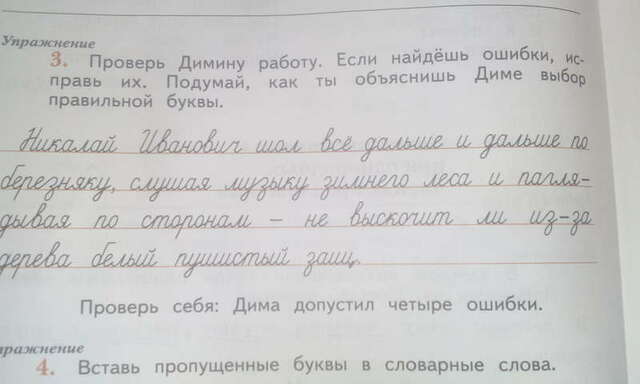 Упражнение
3. Проверь Димину работу. Если найдёшь ошибки, ис-
правь их. Подумай, как ты объяснишь Диме выбор
правильной буквы.
Никалай Иванович шол всё дальше и дальше по
березняку, слушая музыку зимнего леса и пагля-
дывая по сторонам – не выскочит ли из-за
дерева белый пушистый заиц.
Проверь себя: Дима допустил четыре ошибки.
пражнение
4. Вставь пропущенные буквы в словарные слова.